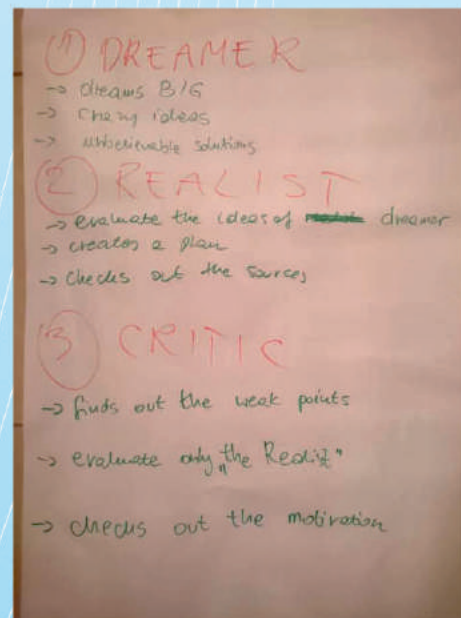 1 DREAMER
→ dreams BIG
→ crazy ideas
→ unbelievable solutions
2 REALIST
→ evaluate the ideas of dreamer
→ creates a plan
→ checks out the sources
3 CRITIC
→ finds out the weak points
→ evaluate only „the Realist"
→ checks out the motivation